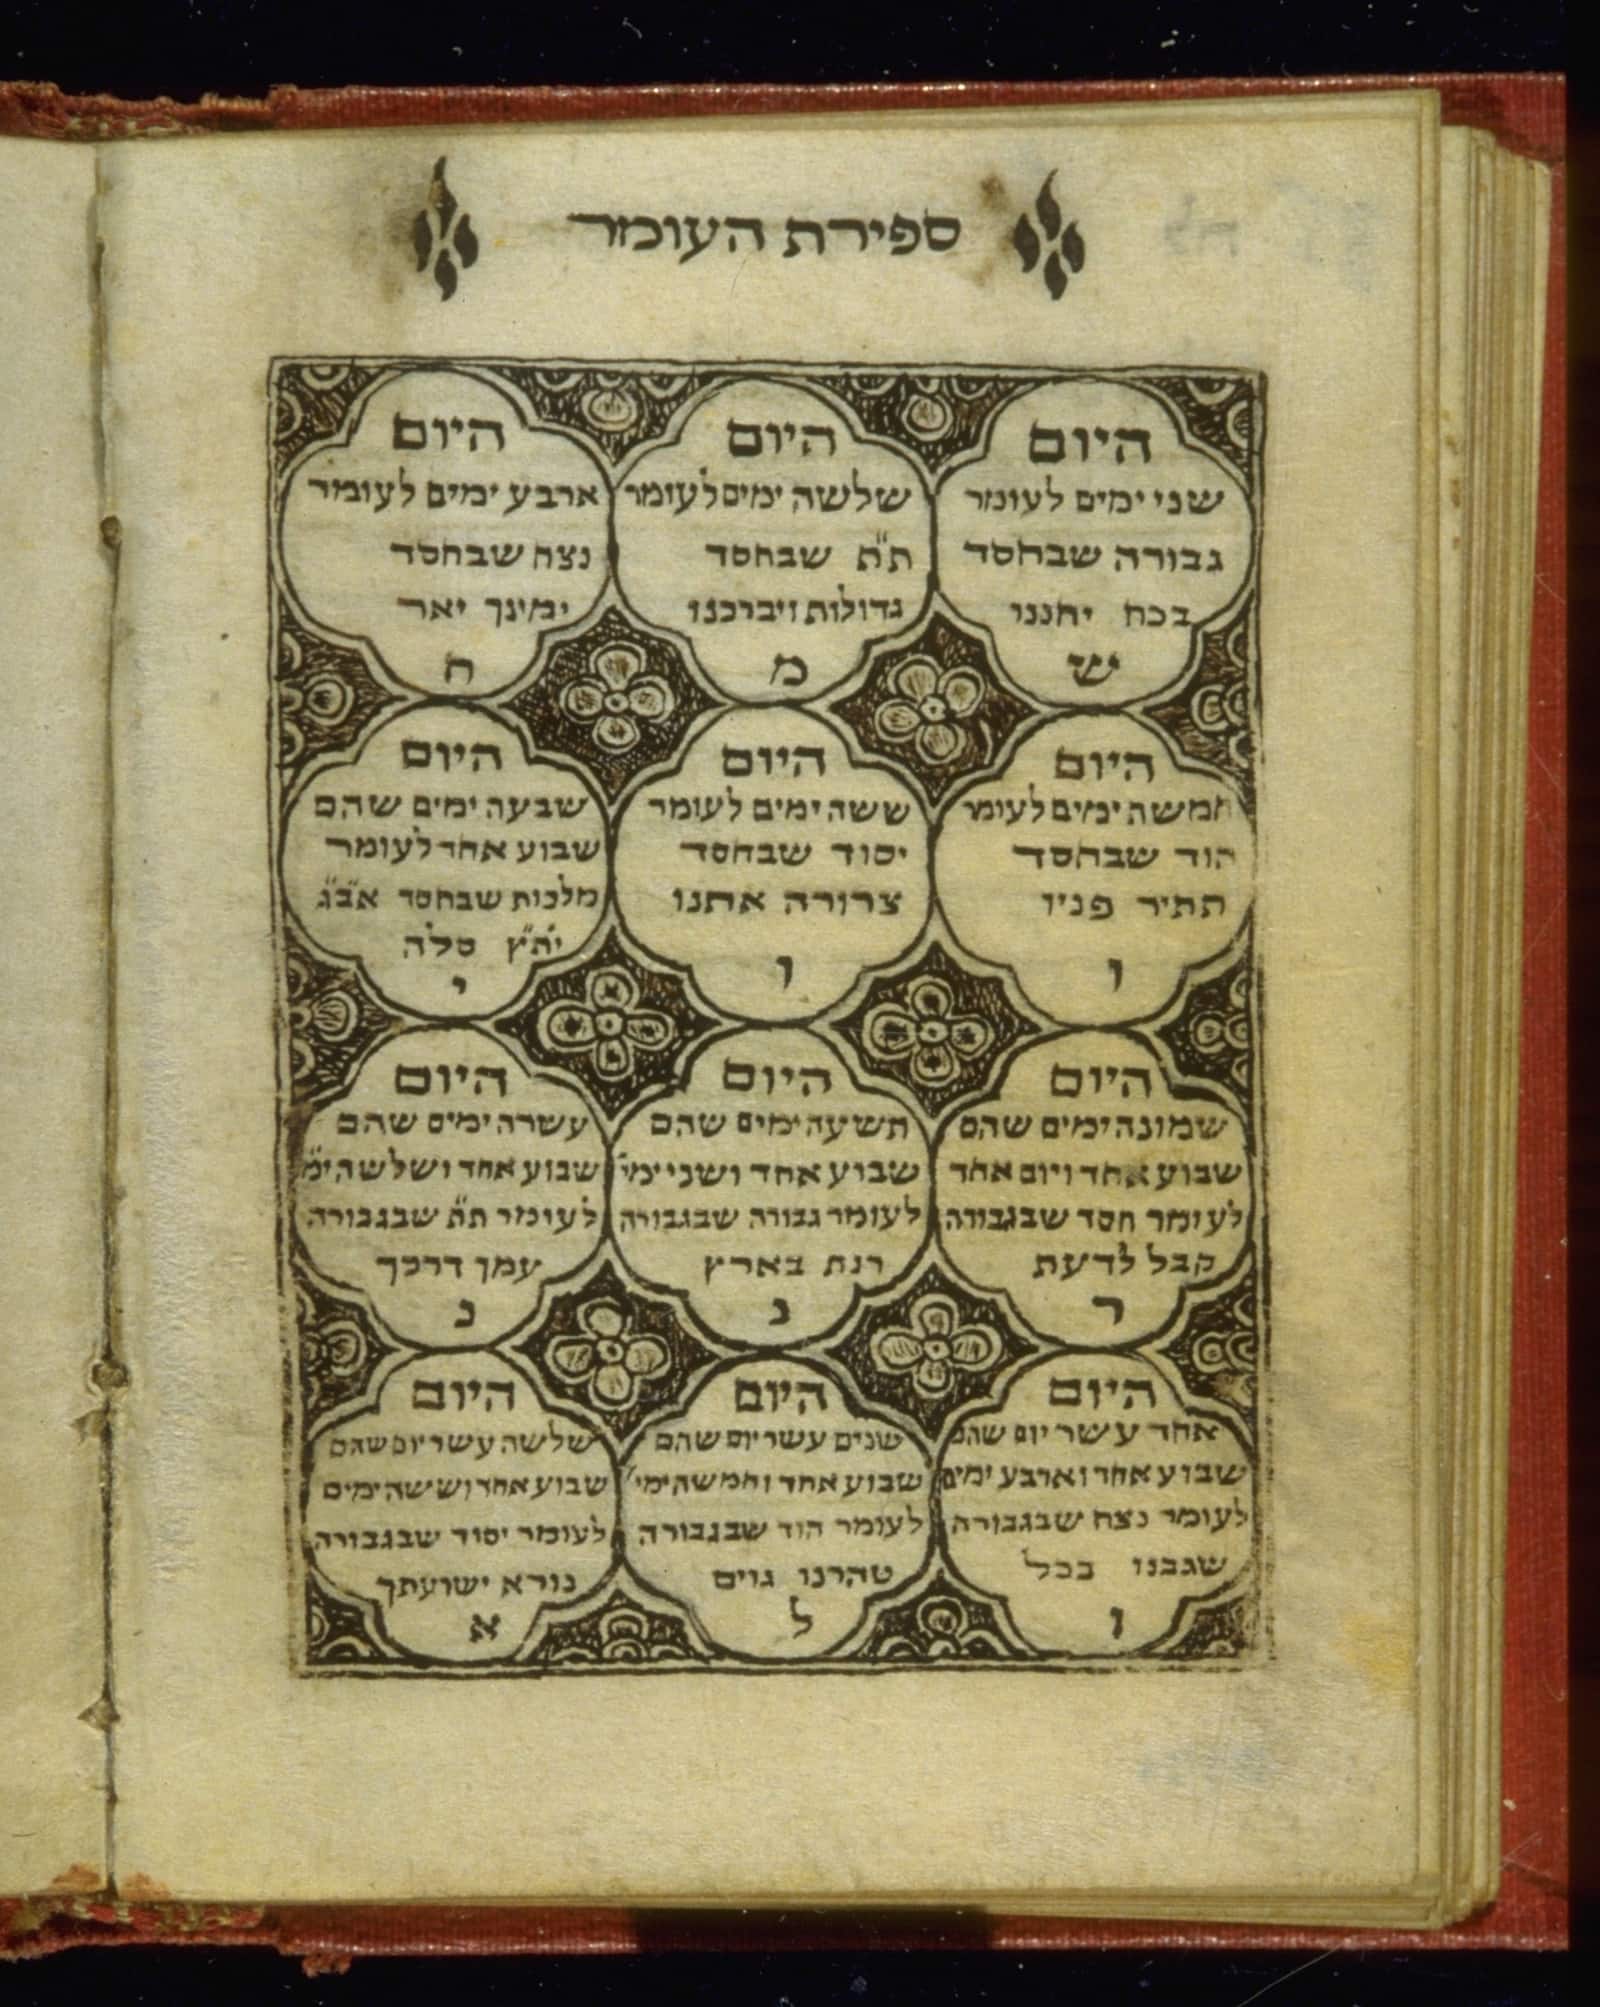 ספירת העומר
היום
שני ימים לעומר
גבורה שבחסד
בכח יחננו
ש
היום
שלשה ימים לעומר
ת״ת שבחסד
גדולות ויברכנו
מ
היום
ארבע ימים לעומר
נצח שבחסד
ימינך יאר
ח
היום
חמשה ימים לעומר
הוד שבחסד
תתיר פניו
ו
היום
ששה ימים לעומר
יסוד שבחסד
צרורה אתנו
ו
היום
שבעה ימים שהם
שבוע אחד לעומר
מלכות שבחסד א״ב״ג
ית״ץ סלה
י
היום
שמונה ימים שהם
שבוע אחד ויום אחד
לעומר חסד שבגבורה
קבל לדעת
ר
היום
תשעה ימים שהם
שבוע אחד ושני ימי׳
לעומר גבורה שבגבורה
רנת בארץ
נ
היום
עשרה ימים שהם
שבוע אחד ושלשה ימ״
לעומר ת״ת שבגבורה
עמך דרכך
נ
היום
אחד עשר יום שהם
שבוע אחד וארבע ימים
לעומר נצח שבגבורה
שגבנו בכל
ו
היום
שנים עשר יום שהם
שבוע אחד וחמשה ימי׳
לעומר הוד שבגבורה
טהרנו גוים
ל
היום
שלשה עשר יום שהם
שבוע אחד וששה ימים
לעומר יסוד שבגבורה
נורא ישועתך
א